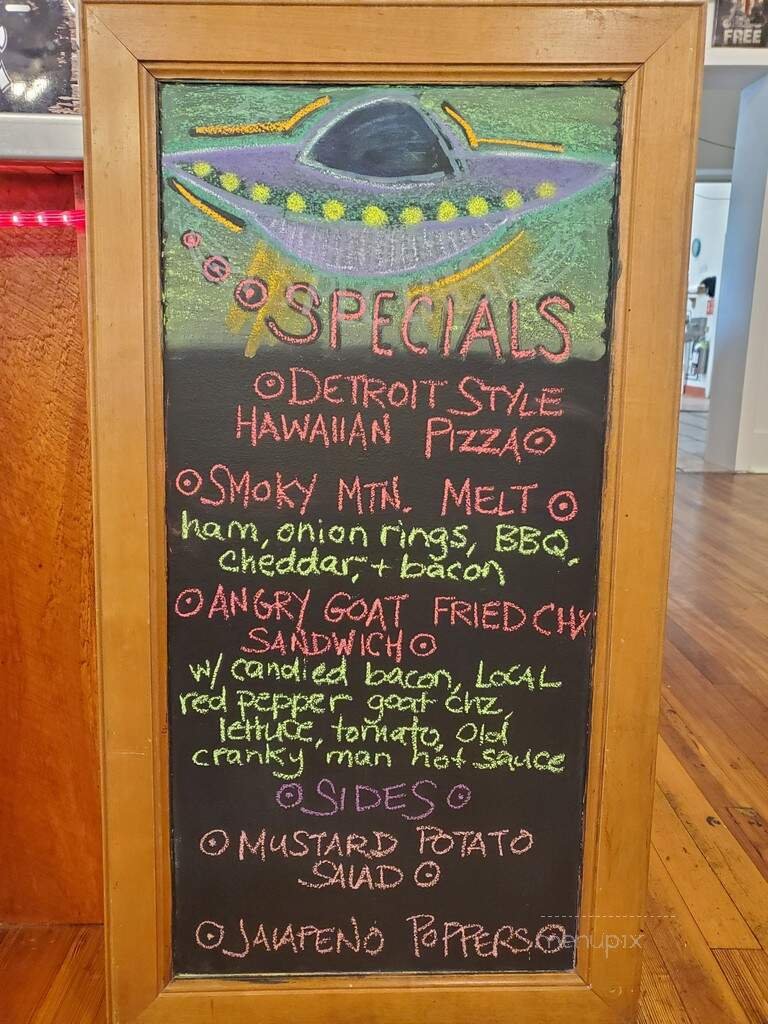 FREE
SPECIALS
DETROIT STYLE
HAWAIIAN PIZZA
SMOKY MTN. MELT
ham, onion rings, BBQ,
cheddar, + bacon
ANGRY GOAT FRIED CHX
SANDWICH
w/ candied bacon, LOCAL
red pepper goat chz,
lettuce, tomato, old
cranky man hot sauce
SIDES
MUSTARD POTATO
SALAD
JALAPENO POPPERS
menupix